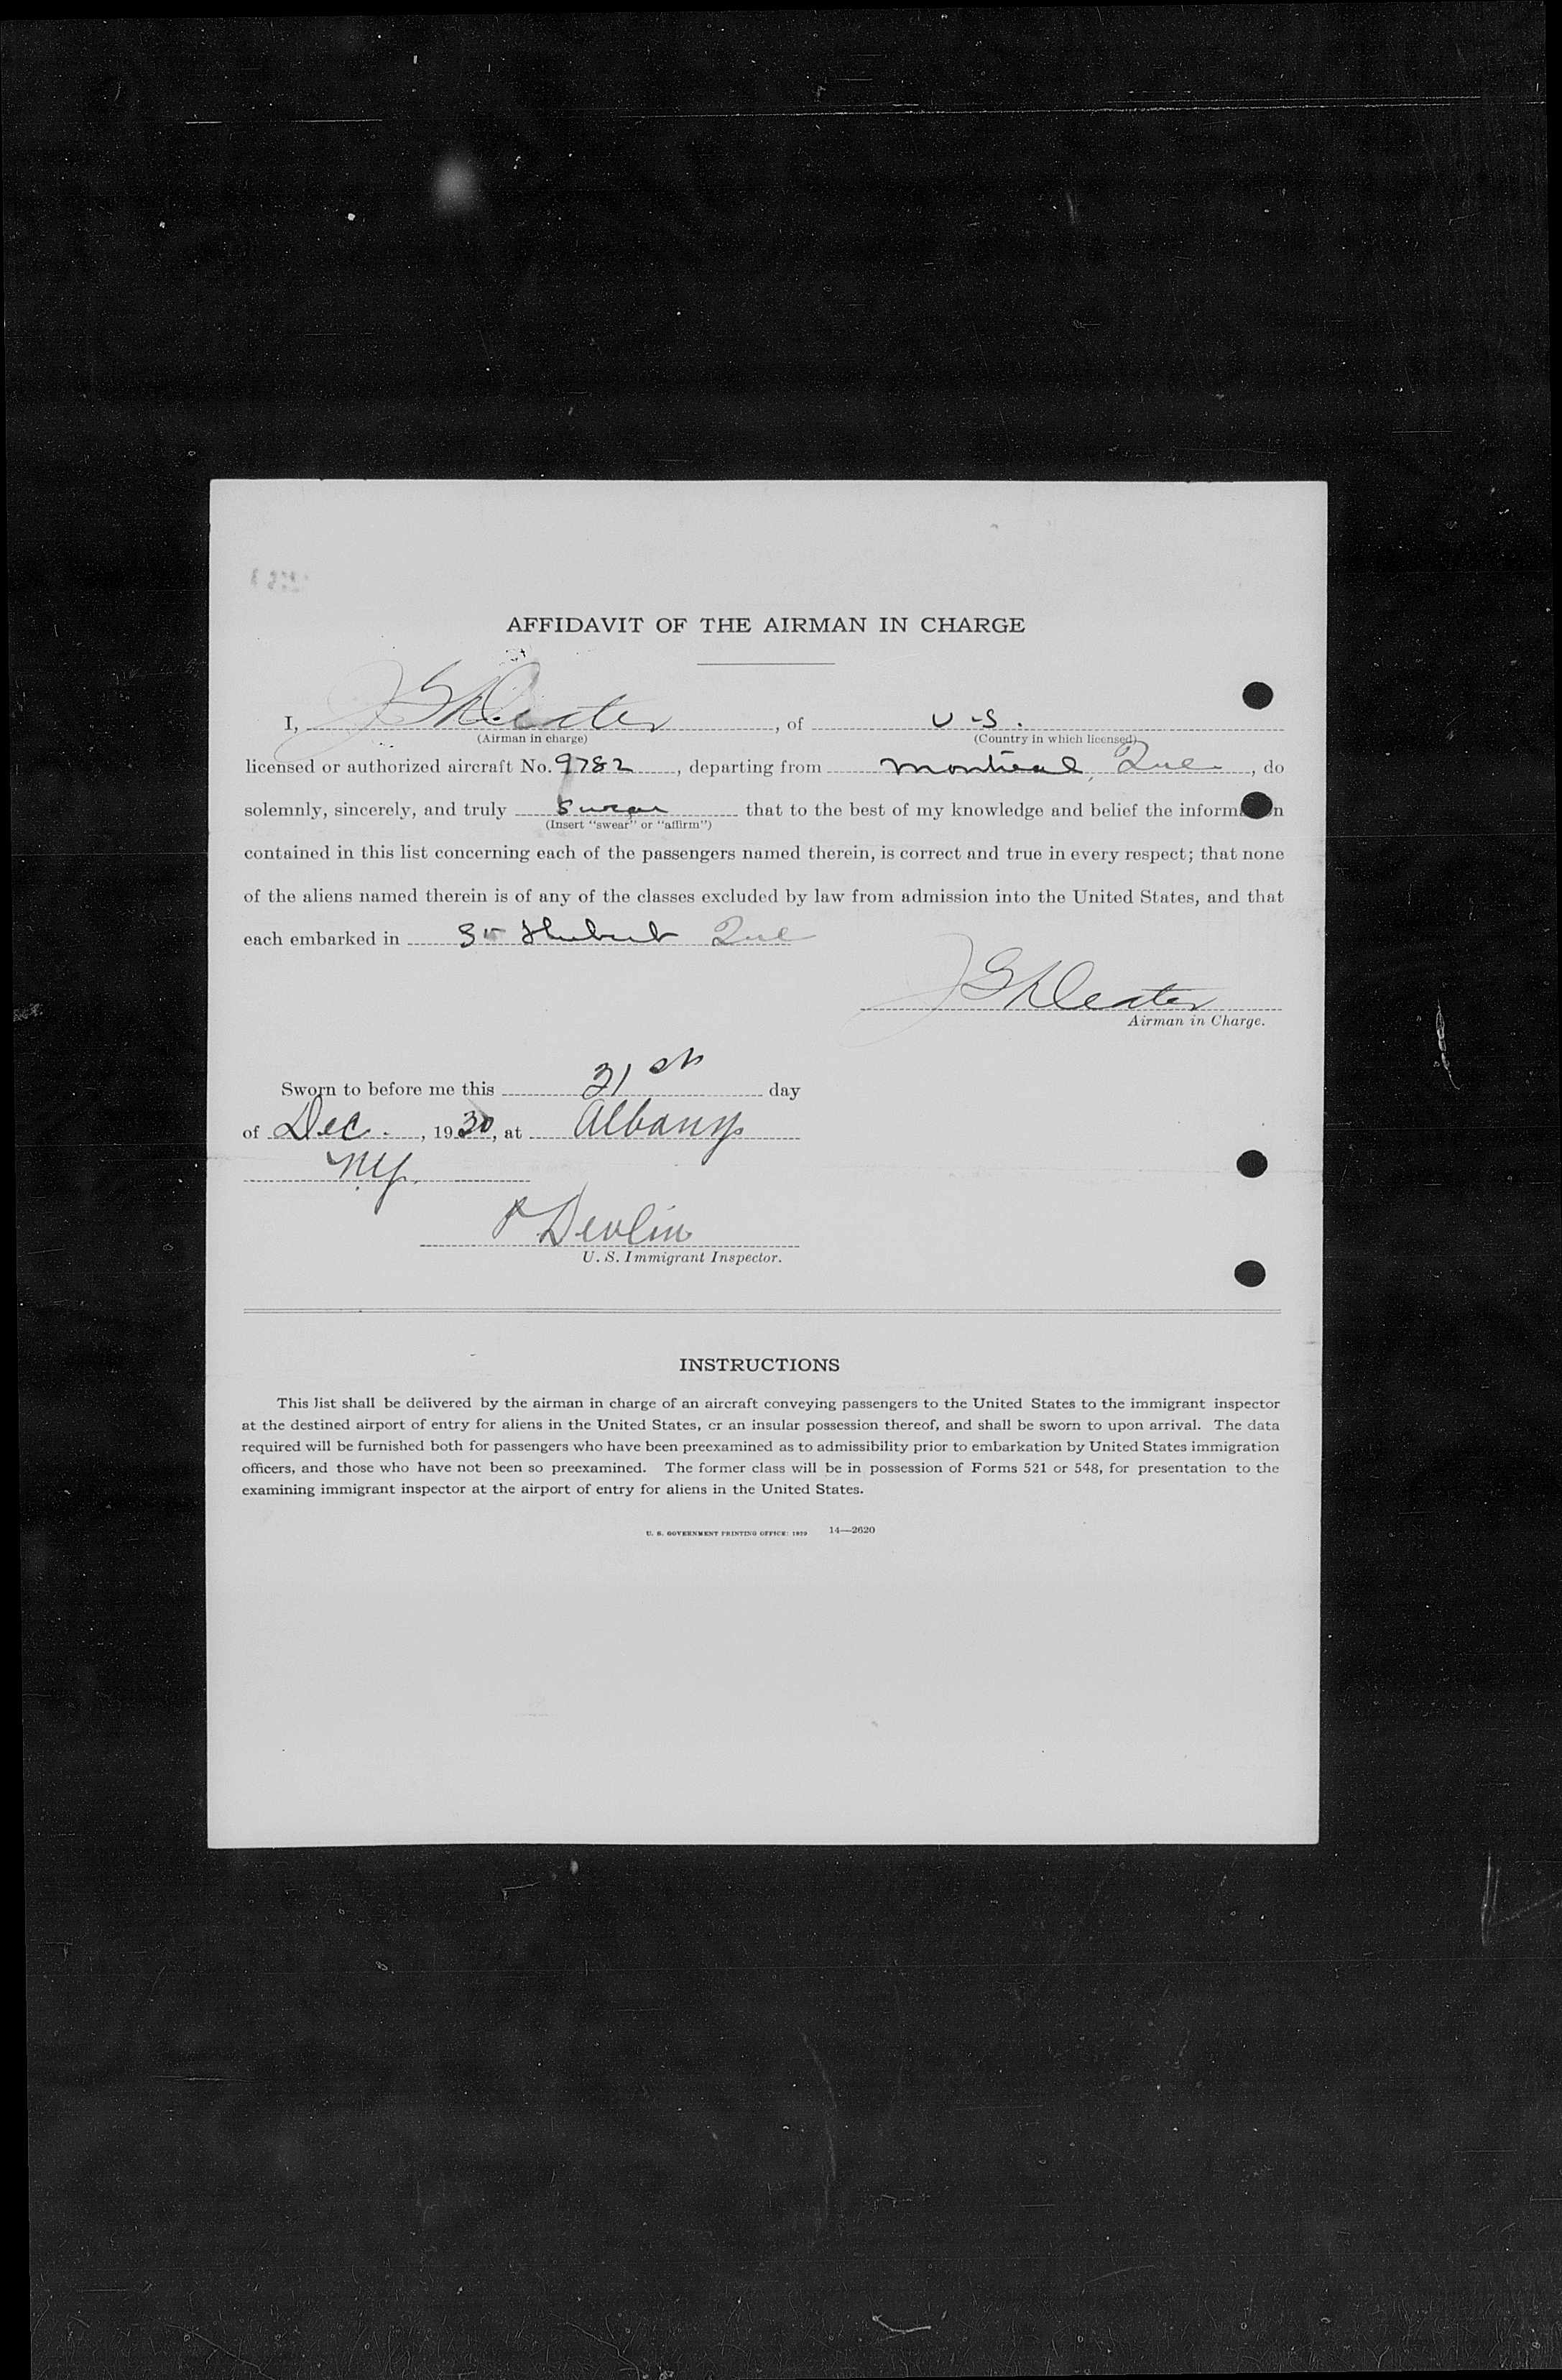 AFFIDAVIT OF THE AIRMAN IN CHARGE
I, , of U-S.
(Airman in charge) (Country in which licensed)
licensed or authorized aircraft No. 9782, departing from Montreal, Que, do
solemnly, sincerely, and truly swear that to the best of my knowledge and belief the information
(Insert "swear" or "affirm")
contained in this list concerning each of the passengers named therein, is correct and true in every respect; that none
of the aliens named therein is of any of the classes excluded by law from admission into the United States, and that
each embarked in St Hubert Que
Airman in Charge.
Sworn to before me this 31st day
of Dec., 1930, at Albany
NY.
P Devlin
U. S. Immigrant Inspector.
INSTRUCTIONS
This list shall be delivered by the airman in charge of an aircraft conveying passengers to the United States to the immigrant inspector
at the destined airport of entry for aliens in the United States, or an insular possession thereof, and shall be sworn to upon arrival. The data
required will be furnished both for passengers who have been preexamined as to admissibility prior to embarkation by United States immigration
officers, and those who have not been so preexamined. The former class will be in possession of Forms 521 or 548, for presentation to the
examining immigrant inspector at the airport of entry for aliens in the United States.
U. S. GOVERNMENT PRINTING OFFICE: 1929 14—2620